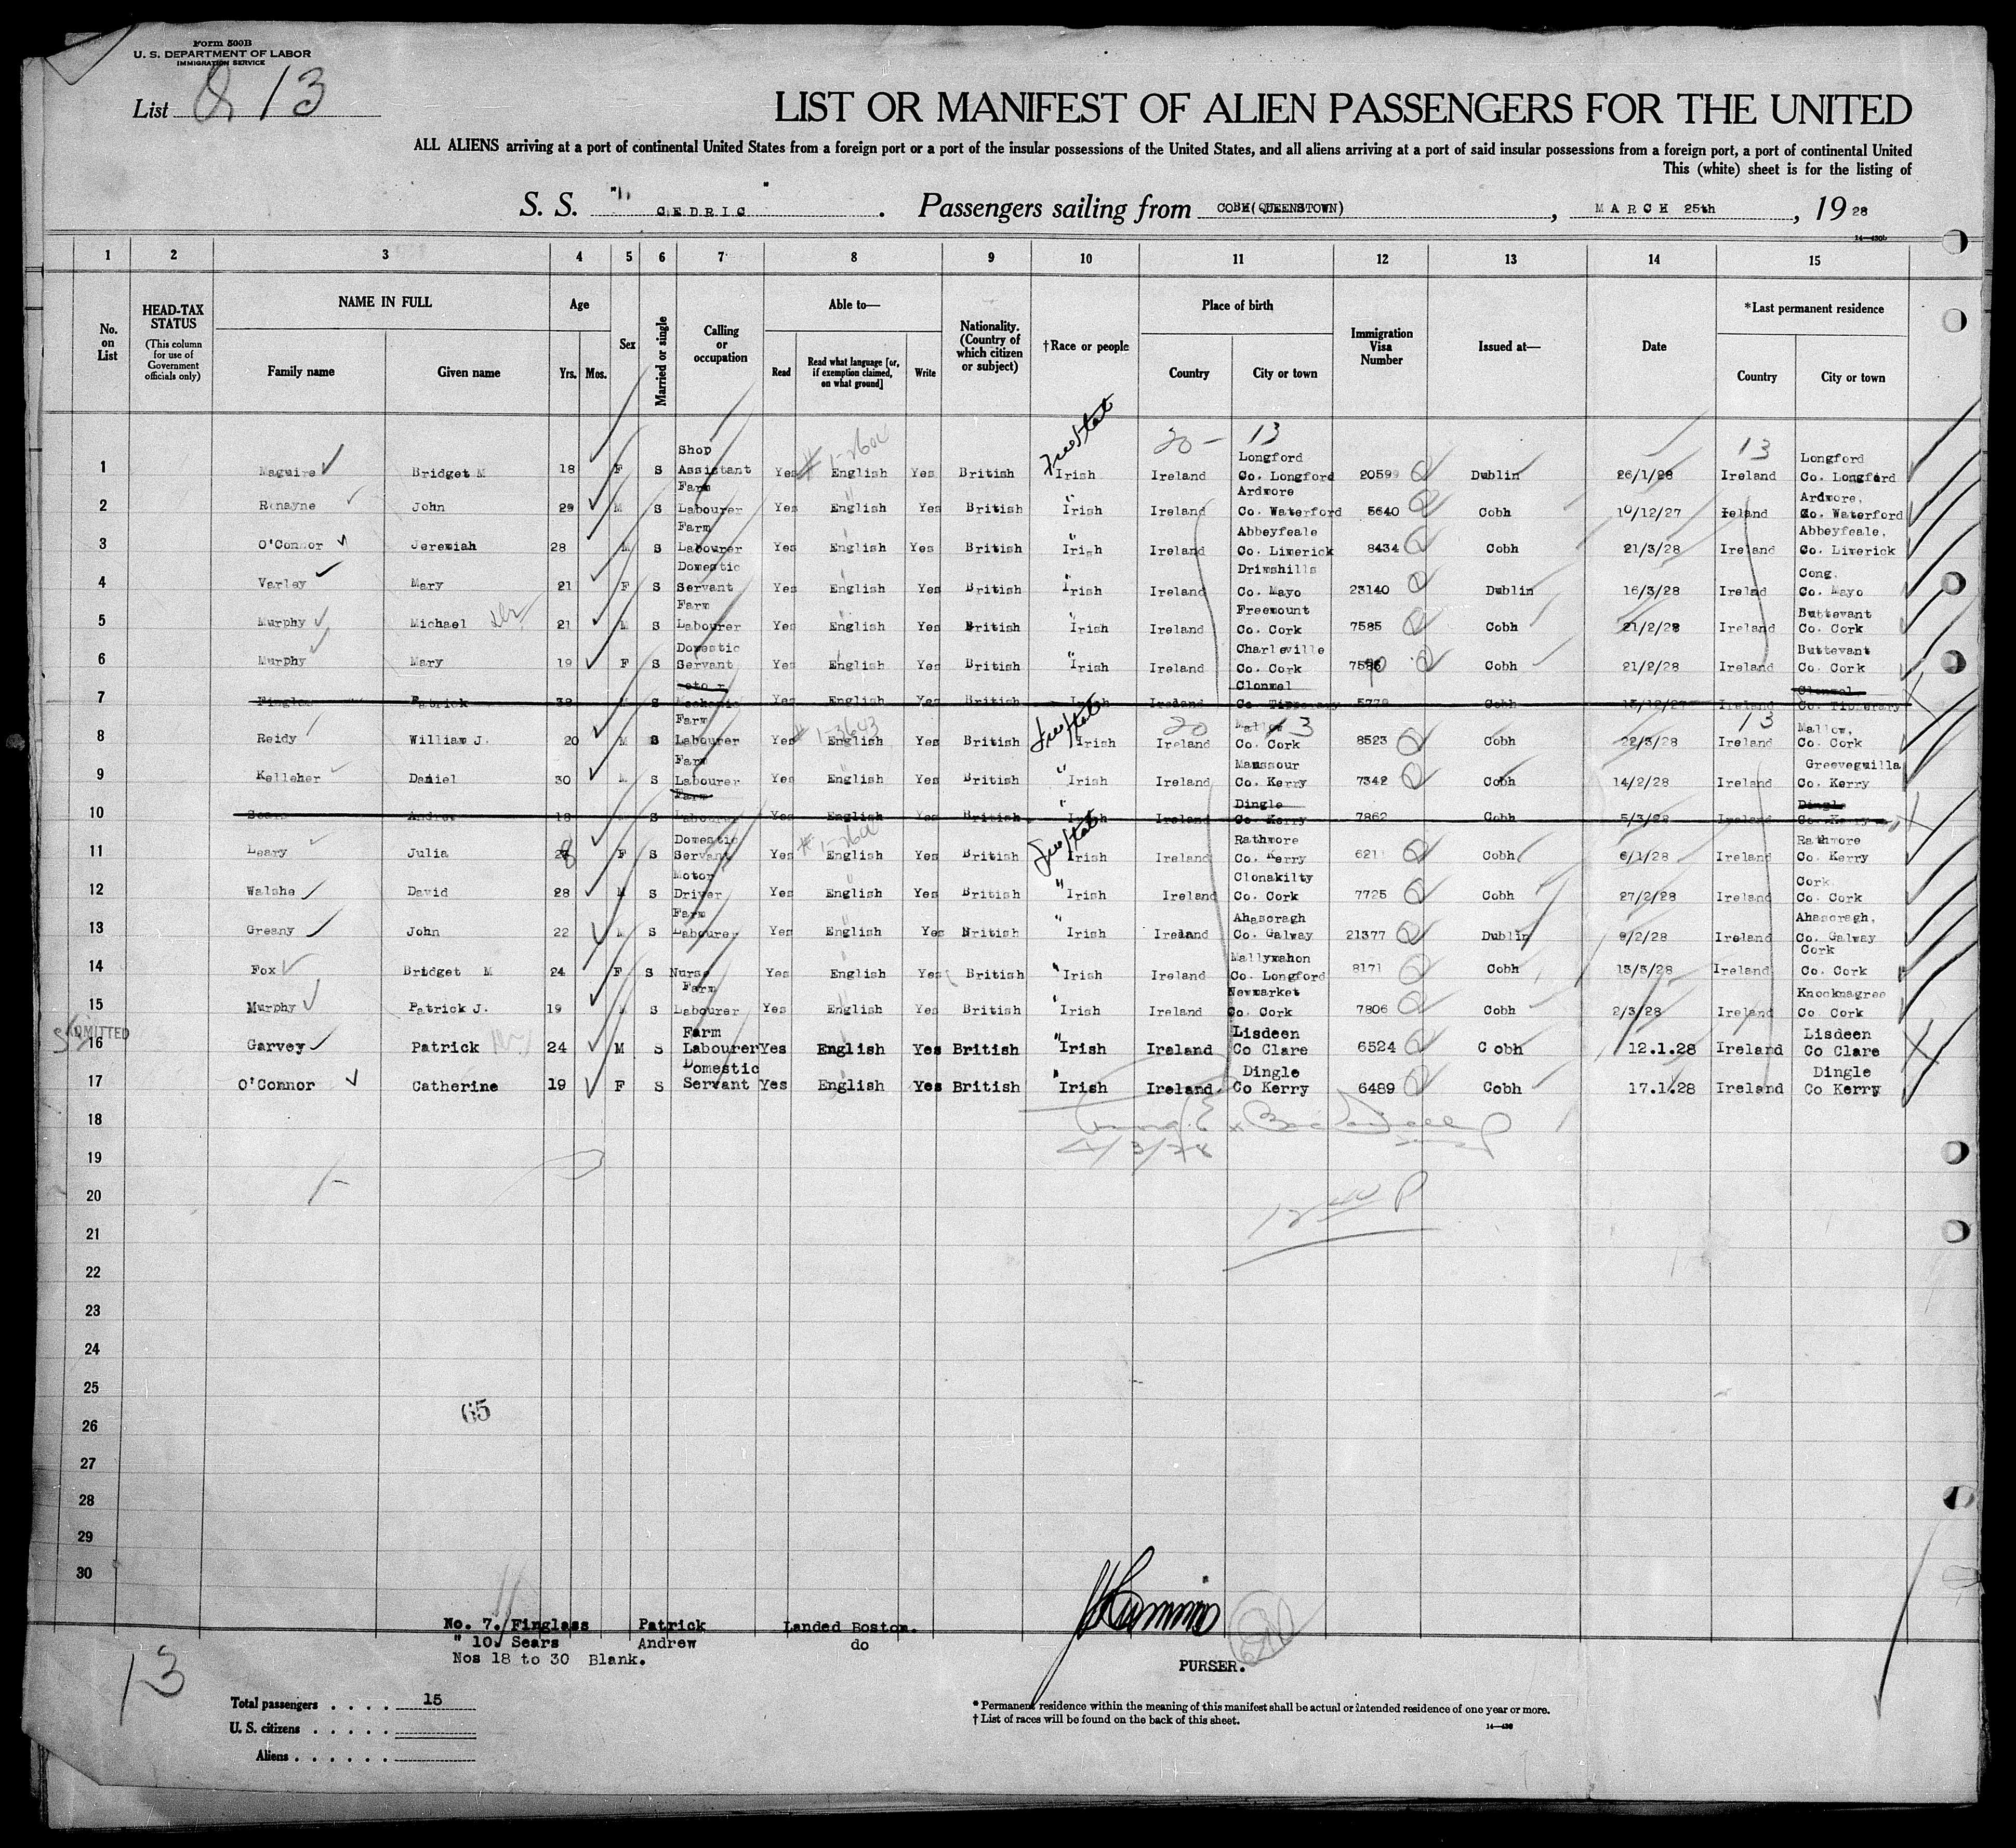 Form 500B
U. S. DEPARTMENT OF LABOR
IMMIGRATION SERVICE
List 8 13
LIST OR MANIFEST OF ALIEN PASSENGERS FOR THE UNITED
ALL ALIENS arriving at a port of continental United States from a foreign port or a port of the insular possessions of the United States, and all aliens arriving at a port of said insular possessions from a foreign port, a port of continental United
This (white) sheet is for the listing of
S. S. " CEDRIC " . Passengers sailing from COBH(QUEENSTOWN) , MARCH 25th , 19 28
14—430b
1 2 3 4 5 6 7 8 9 10 11 12 13 14 15
No. on List
HEAD-TAX STATUS (This column for use of Government officials only)
NAME IN FULL
Family name Given name
Age
Yrs. Mos.
Sex
Married or single
Calling or occupation
Able to—
Read Read what language [or, if exemption claimed, on what ground] Write
Nationality. (Country of which citizen or subject)
†Race or people
Place of birth
Country City or town
Immigration Visa Number
Issued at—
Date
*Last permanent residence
Country City or town
Free Stat 20 - 13 13
1 Maguire Bridget M 18 F S Shop Assistant Yes English Yes British Irish Ireland Longford Co. Longford 20599 Dublin 26/1/28 Ireland Longford Co. Longford
2 Ronayne John 29 M S Farm Labourer Yes English Yes British " Irish Ireland Ardmore Co. Waterford 5640 Cobh 10/12/27 Ireland Ardmore, Co. Waterford
3 O'Connor Jeremiah 28 M S Farm Labourer Yes English Yes British " Irish Ireland Abbeyfeale Co. Limerick 8434 Cobh 21/3/28 Ireland Abbeyfeale, Co. Limerick
4 Varley Mary 21 F S Domestic Servant Yes English Yes British " Irish Ireland Drimshills Co. Mayo 23140 Dublin 16/3/28 Irelnd Cong, Co. Mayo
5 Murphy Michael 21 M S Farm Labourer Yes English Yes British " Irish Ireland Freemount Co. Cork 7585 Cobh 21/2/28 Ireland Buttevant Co. Cork
6 Murphy Mary 19 F S Domestic Servant Yes English Yes British " Irish Ireland Charleville Co. Cork Cobh 21/2/28 Ireland Buttevant Co. Cork
7 Finglas Patrick 38 M S Mechanic Yes English Yes British Irish Ireland Clonmel Co Tipperary 5778 Cobh 15/12/27 Ireland Clonmel Co. Tipperary
Free Stat 20 13 13
8 Reidy William J. 20 M S Farm Labourer Yes English Yes British Irish Ireland Mallow Co. Cork 8523 Cobh 22/3/28 Ireland Mallow, Co. Cork
9 Kelleher Daniel 30 M S Farm Labourer Yes English Yes British " Irish Ireland Manssour Co. Kerry 7342 Cobh 14/2/28 Ireland Greeveguilla Co. Kerry
10 Sears Andrew 18 S Farm Labourer Yes English Yes British " Irish Ireland Dingle Co. Kerry 7862 Cobh 5/3/28 Ireland Dingle Co. Kerry
Free Stat
11 Leary Julia F S Domestic Servant Yes English Yes British Irish Ireland Rathmore Co. Kerry 621 Cobh 6/1/28 Ireland Rathmore Co. Kerry
12 Walshe David 28 M S Motor Driver Yes English Yes British " Irish Ireland Clonakilty Co. Cork 7725 Cobh 27/2/28 Ireland Cork, Co. Cork
13 Greany John 22 M S Farm Labourer Yes English Yes British " Irish Ireland Ahascragh Co. Galway 21377 Dublin 9/2/28 Ireland Ahascragh, Co. Galway
14 Fox Bridget M 24 F S Nurse Yes English Yes British " Irish Ireland Mallymahon Co. Longford 8171 Cobh 13/3/28 Ireland Cork Co. Cork
15 Murphy Patrick J. 19 M S Farm Labourer Yes English Yes British " Irish Ireland Newmarket Co. Cork 7806 Cobh 2/3/28 Ireland Knocknagree Co. Cork
ADMITTED
16 Garvey Patrick 24 M S Farm Labourer Yes English Yes British " Irish Ireland Lisdeen Co Clare 6524 Cobh 12.1.28 Ireland Lisdeen Co Clare
17 O'Connor Catherine 19 F S Domestic Servant Yes English Yes British " Irish Ireland Dingle Co Kerry 6489 Cobh 17.1.28 Ireland Dingle Co Kerry
18
4/3/28
19
20
21
22
23
24
25
65
26
27
28
29
30
No. 7. Finglass Patrick Landed Boston.
" 10. Sears Andrew do
Nos 18 to 30 Blank.
PURSER.
13
Total passengers . . . . 15
U. S. citizens . . . . .
Aliens . . . . . .
* Permanent residence within the meaning of this manifest shall be actual or intended residence of one year or more.
† List of races will be found on the back of this sheet.
14—430